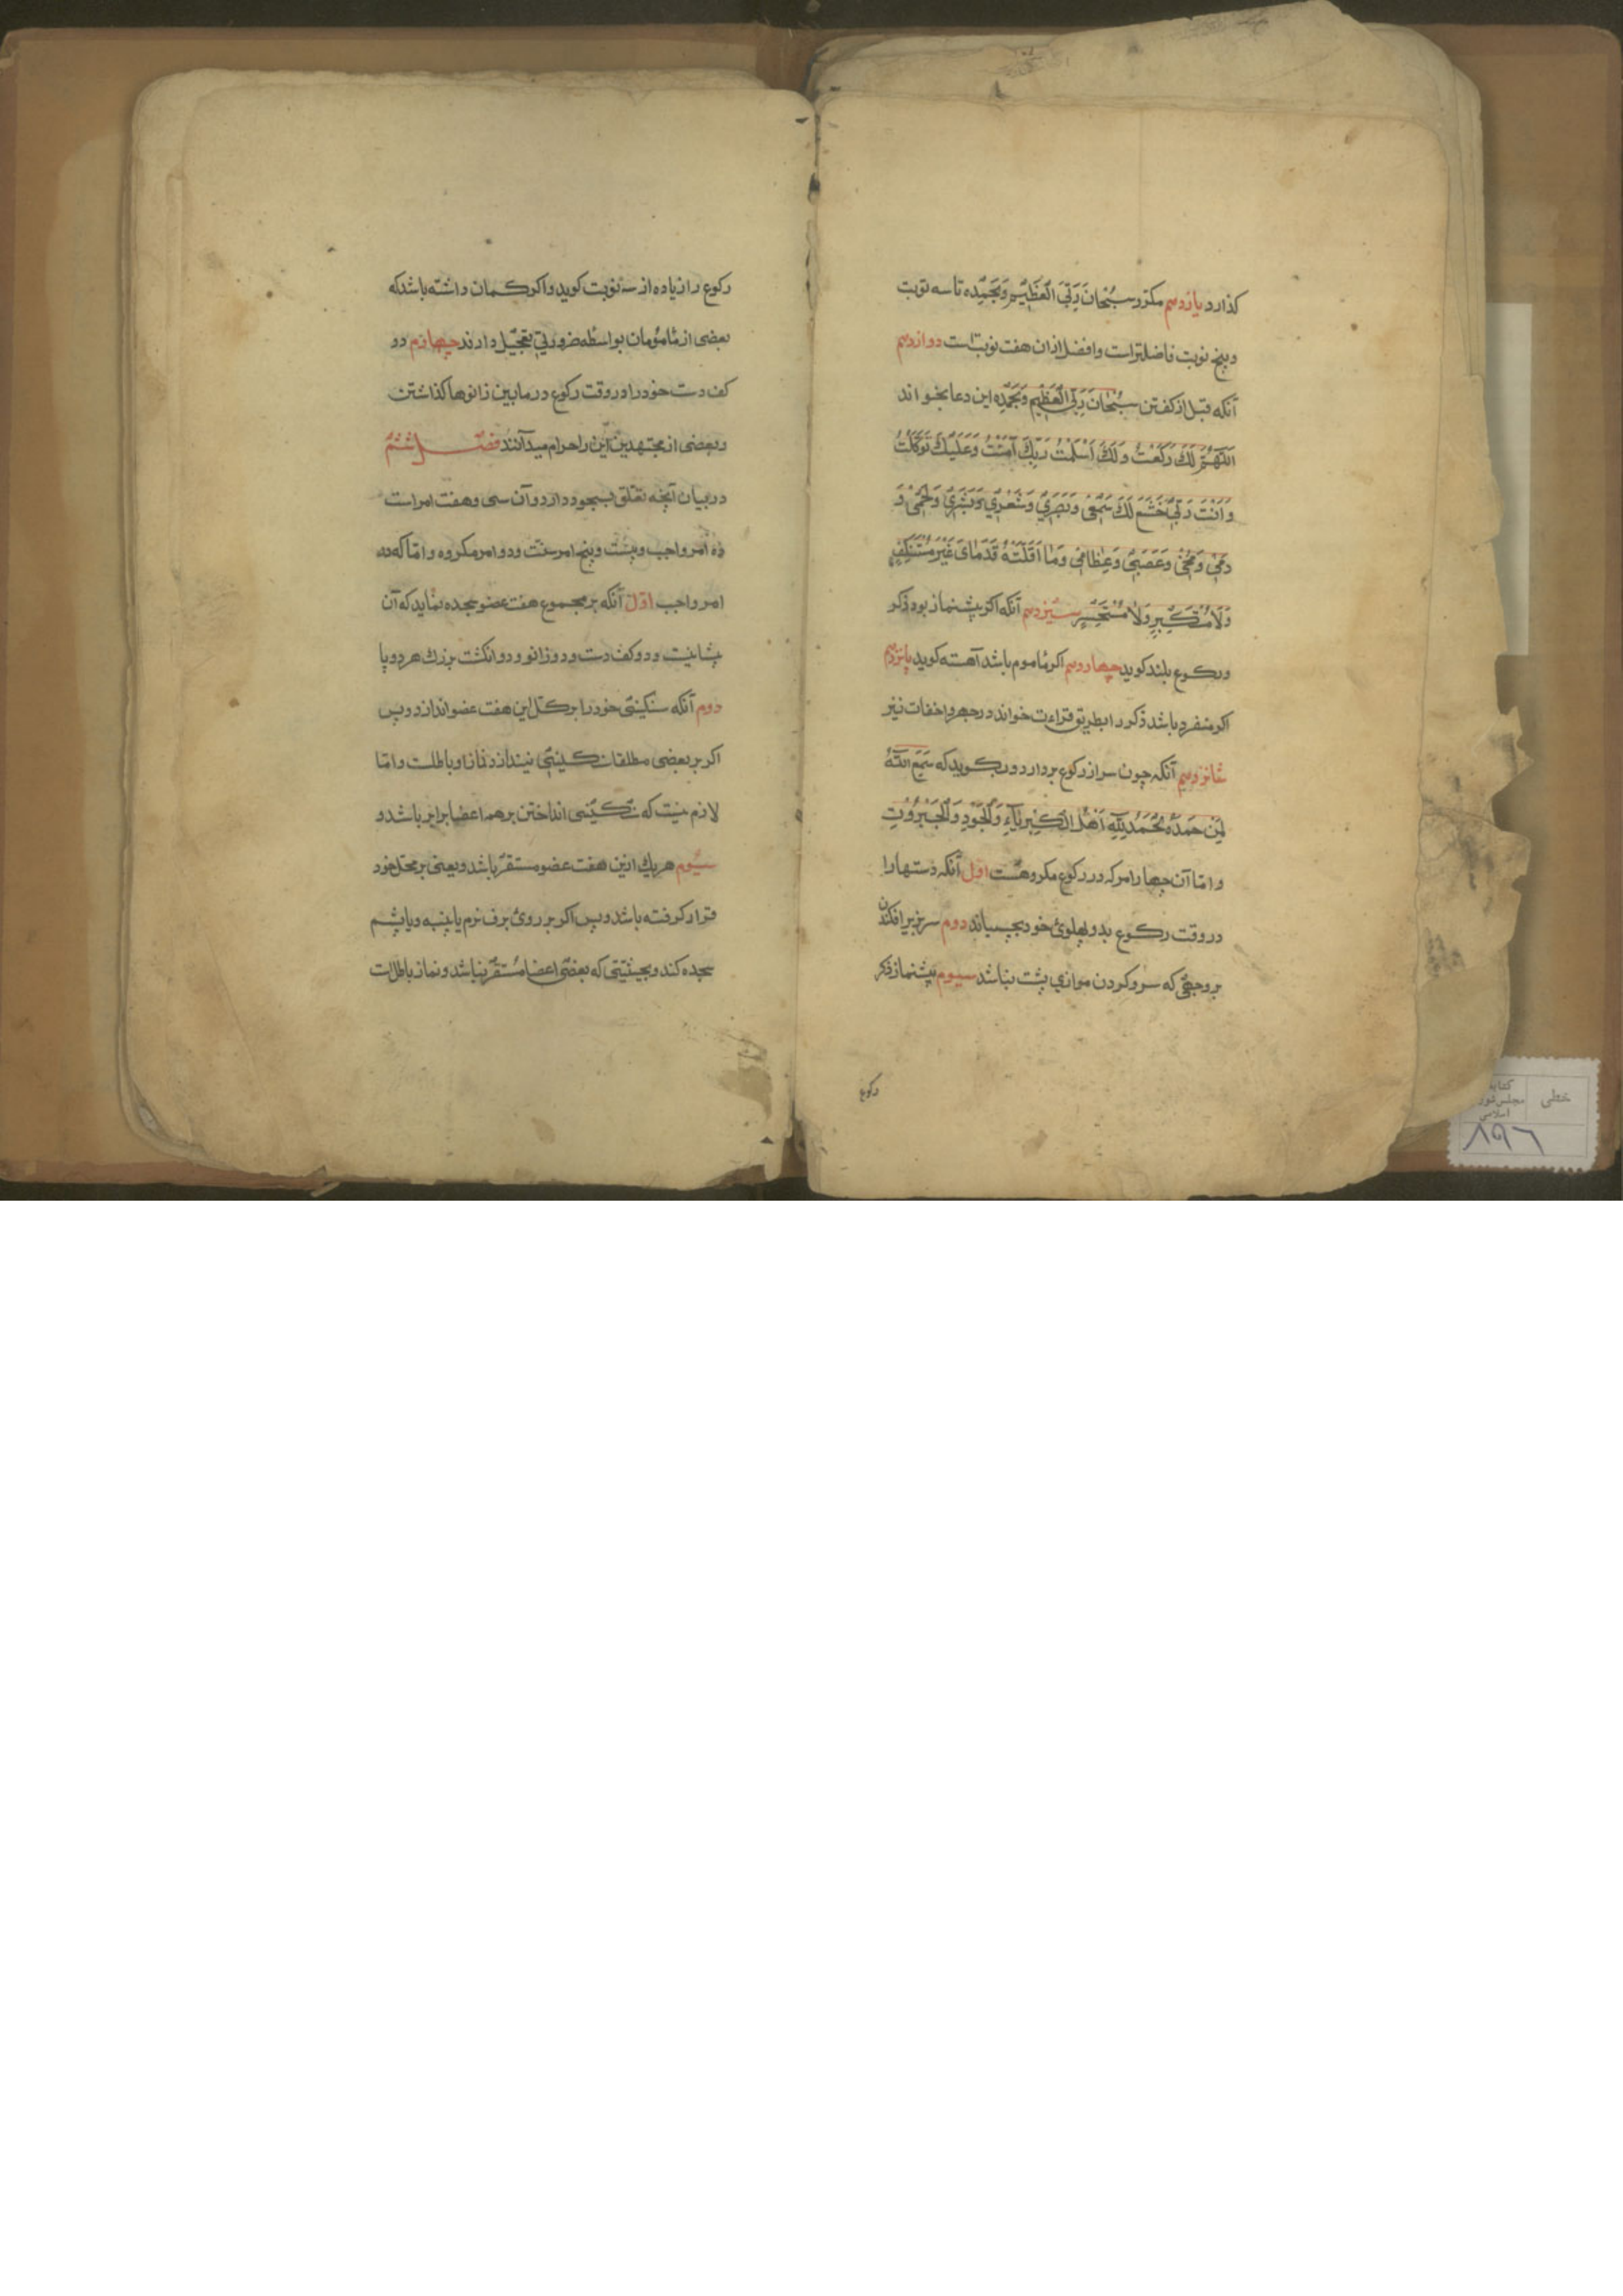 كذارد يازدهم مكرر سُبْحَانَ رَبِّيَ الْعَظِيمِ وَبِحَمْدِه تا سه نوبت
و پنج نوبت فاضلتر است و افضل از ان هفت نوبت است دوازدهم
آنكه قبل از كفتن سُبْحَانَ رَبِّيَ الْعَظِيمِ وَبِحَمْدِه اين دعا بخواند
اَللّهُمَّ لَكَ رَكَعْتُ وَلَكَ اَسْلَمْتُ وَبِكَ آمَنْتُ وَعَلَيْكَ تَوَكَّلْتُ
وَاَنْتَ رَبّي خَشَعَ لَكَ سَمْعي وَبَصَري وَشَعْري وَبَشَري وَلَحْمي وَ
دَمي وَمُخّي وَعَصَبي وَعِظامي وَمَا اَقَلَّتْهُ قَدَمَايَ غَيْرَ مُسْتَنْكِفٍ
وَلَا مُسْتَكْبِرٍ وَلَا مُسْتَحْسِرٍ سيزدهم آنكه اكر پيشنماز بود ذكر
ركوع بلند كويد چهاردهم اكر ماموم باشد آهسته كويد پانزدهم
اكر منفرد باشد ذكر را بطريق قراءت خواند در جهر و اخفات نيز
شانزدهم آنكه چون سر از ركوع بردارد بكويد كه سَمِعَ اللّهُ
لِمَنْ حَمِدَهُ اَلْحَمْدُ لِلّهِ اَهْلِ الْكِبْرِيَآءِ وَالْجُودِ وَالْجَبَرُوتِ
و امّا آن چهار امر كه در ركوع مكروهست اول آنكه دستها را
در وقت ركوع بدو پهلوئ خود بچسباند دوم سر بزير افكندن
بر وجهي كه سر و كردن موازي پشت نباشد سيوم پيشنماز ذكر
ركوع
ركوع را زياده از سه نوبت كويد و اكر كمان داشته باشد كه
بعضى از مامومان بواسطه ضرورتي تعجيل دارند چهارم دو
كف دست خود را در وقت ركوع در مابين زانوها كذاشتن
و بعضى از مجتهدين اين را حرام ميدانند فصل ششم
در بيان آنچه تعلق بسجود دارد و آن سى و هفت امر است
ده امر واجب و بيست و پنج امر سنت و دو امر مكروه و امّا كه ده
امر واجب اوّل آنكه بر مجموع هفت عضو سجده نمايد كه آن
پشانيست و دو كف دست و دو زانو و دو انكشت بزرك هر دو پا
دوم آنكه سنكينى خود را بر كل اين هفت عضو اندازد و پس
اكر بر بعضى مطلقا سنكينى نيندازد نماز او باطلست و امّا
لازم نيست كه سنكينى انداختن بر همه اعضا برابر باشد و
سيوم هر يك ازين هفت عضو مستقر باشد و يعنى بر محل خود
قرار كرفته باشد و پس اكر بر روئ برف نرم يا پنبه و يا پشم
سجده كند و بحيثيّتى كه بعضى اعضا مستقر نباشد و نماز باطل است
خطى
كتابخانه
مجلس شوراى
اسلامى
۸۹۶